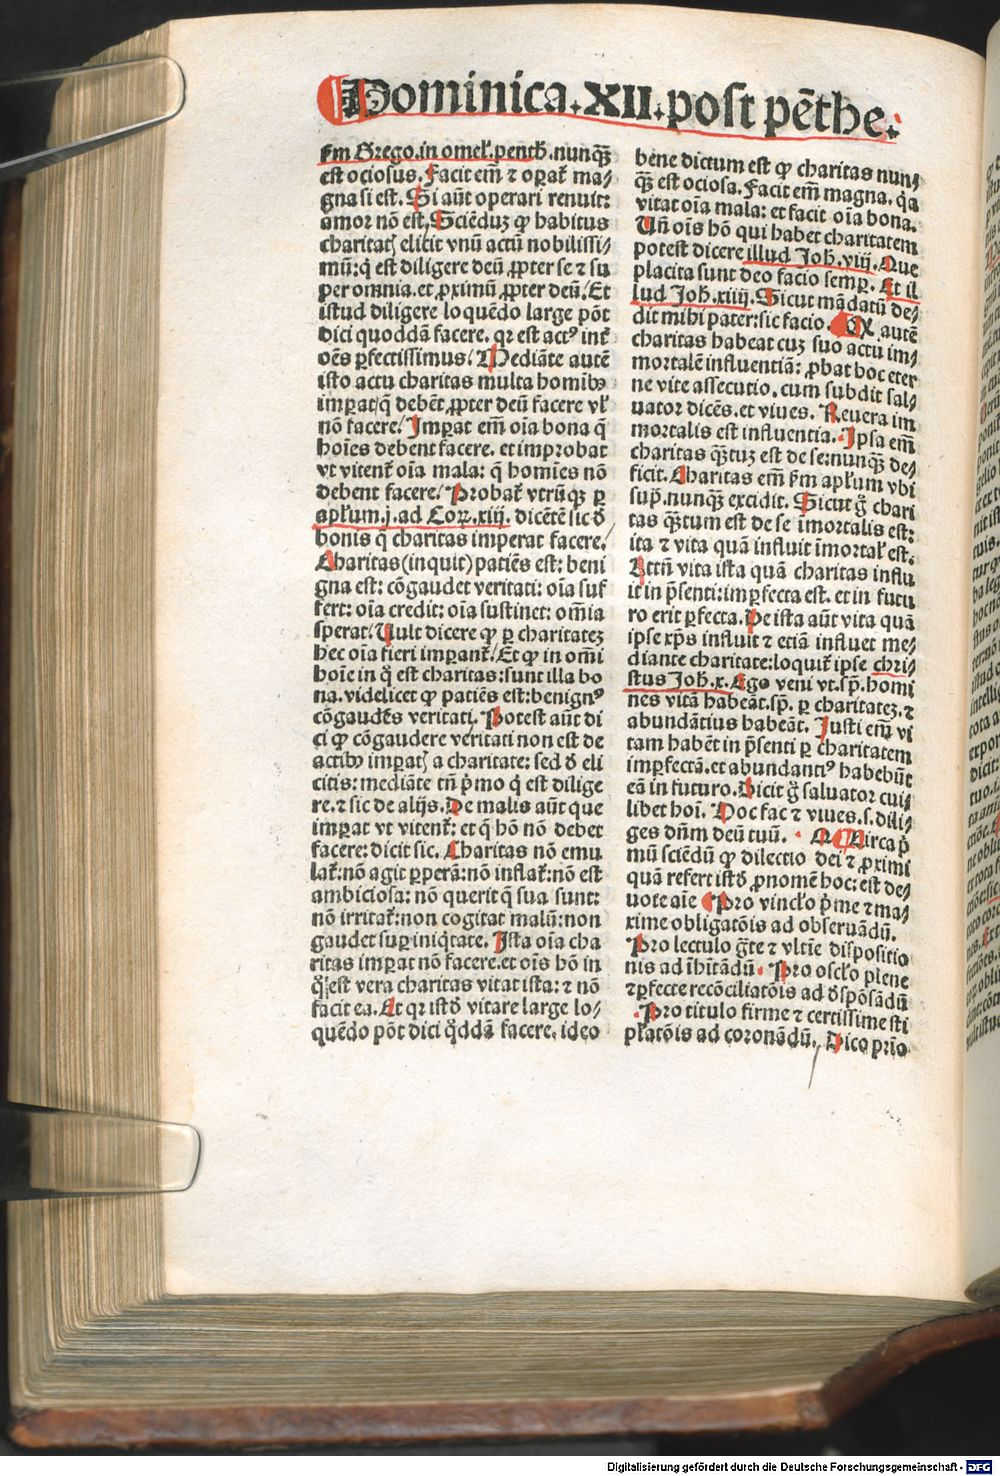 Dominica.XII.post pēthe.
ẜm Grego.in omeł.pentħ.nunqȝ̄
est ociosus. Facit em̄ ⁊ oꝑat̄ ma⸗
gna si est. Si aūt operari renuit:
amor nō est. Sciēduȝ ꝙ habitus
charitatꝭ elicit vnū actū nobilissi⸗
mū:q̇ est diligere deū ꝓpter se ⁊ su
per omnia.et ꝓximū ꝓpter deū. Et
istud diligere loquēdo large pōt
dici quoddā facere. qꝛ est actꝰ int̄
oēs ꝑfectissimus. Mediāte autē
isto actu charitas multa homibꝰ
imꝑat q̄ debēt ꝓpter deū facere vł
nō facere. Imꝑat em̄ oīa bona q̄
hoīes debent facere. et improbat
vt vitent̄ oīa mala: q̄ homīes nō
debent facere. Probat̄ vtrūqȝ ꝑ
apłum.j.ad Coꝝ.xiij. dicētē sic đ
bonis q̄ charitas imperat facere.
Charitas(inquit)patiēs est: beni
gna est: cōgaudet veritati: oīa suf
fert: oīa credit: oīa sustinet: om̄ia
sperat. Uult dicere ꝙ ꝑ charitateȝ
hec oīa fieri imꝑant̄. Et ꝙ in om̄i
hoīe in q̊ est charitas:sunt illa bo
na. videlicet ꝙ patiēs est:benignꝰ
cōgaudēs veritati. Potest aūt di
ci ꝙ cōgaudere veritati non est de
actibꝰ imꝑatꝭ a charitate: sed đ eli
citis: mediāte tn̄ p̄mo q̇ est dilige
re.⁊ sic de alijs. De malis aūt que
imꝑat vt vitent̄: et q̄ hō nō debet
facere: dicit sic. Charitas nō emu
lat̄:nō agit ꝑperā:nō inflat̄:nō est
ambiciosa: nō querit q̄ sua sunt:
nō irritat̄:non cogitat malū:non
gaudet suꝑ iniq̇tate. Ista oīa cha
ritas imꝑat nō facere.et oīs hō in
q̊ est vera charitas vitat ista: ⁊ nō
facit ea. Et qꝛ istđ vitare large lo⸗
quēdo pōt dici q̊ddā facere. ideo
bene dictum est ꝙ charitas nun⸗
qȝ̄ est ociosa. Facit em̄ magna. q̇a
vitat oīa mala: et facit oīa bona.
Un̄ oīs hō qui habet charitatem
potest dicere illud Joħ.viij. Que
placita sunt deo facio semꝑ. Et il
lud Joħ.xiiij. Sicut mādatū de⸗
dit mihi pater:sic facio. Qꝛ autē
charitas habeat cuȝ suo actu im⸗
mortalē influentiā: ꝓbat hoc eter
ne vite assecutio. cum subdit sal⸗
uator dicēs. et viues. Reuera im
mortalis est influentia. Ipsa em̄
charitas qȝ̄tuȝ est de se:nunqȝ̄ de⸗
ficit. Charitas em̄ ẜm apłum vbi
sup̄. nunqȝ̄ excidit. Sicut g̊ chari
tas qȝ̄tum est de se īmortalis est:
ita ⁊ vita quā influit īmortał est.
Attn̄ vita ista quā charitas influ
it in p̄senti:imꝑfecta est. et in futu
ro erit ꝑfecta. De ista aūt vita quā
ipse xp̄s influit ⁊ etiā influet me⸗
diante charitate:loquit̄ ipse chri⸗
stus Joħ.x. Ego veni vt.sp̄.homi
nes vitā habeāt.sp̄. ꝑ charitateȝ. ⁊
abundātius habeāt. Justi em̄ vi
tam habēt in p̄senti ꝑ charitatem
imꝑfectā.et abundantiꝰ habebūt
eā in futuro. Dicit g̊ saluator cui⸗
libet hoī. Hoc fac ⁊ viues.s.dili⸗
ges dn̄m deū tuū. Circa p̄
mū sciēdū ꝙ dilectio dei ⁊ ꝓximi
quā refert istđ ꝓnomē hoc: est de⸗
uote aīe Pro vincło p̄me ⁊ ma⸗
xime obligatōis ad obseruādū.
Pro lectulo g̈te ⁊ vltīe dispositio
nis ad iħitādū. Pro oscło plene
⁊ꝑfecte recōciliatōis ad đspōsādū
Pro titulo firme ⁊ certissime sti
płatōis ad coronādū. Dico pr̄io
Digitalisierung gefördert durch die Deutsche Forschungsgemeinschaft - DFG